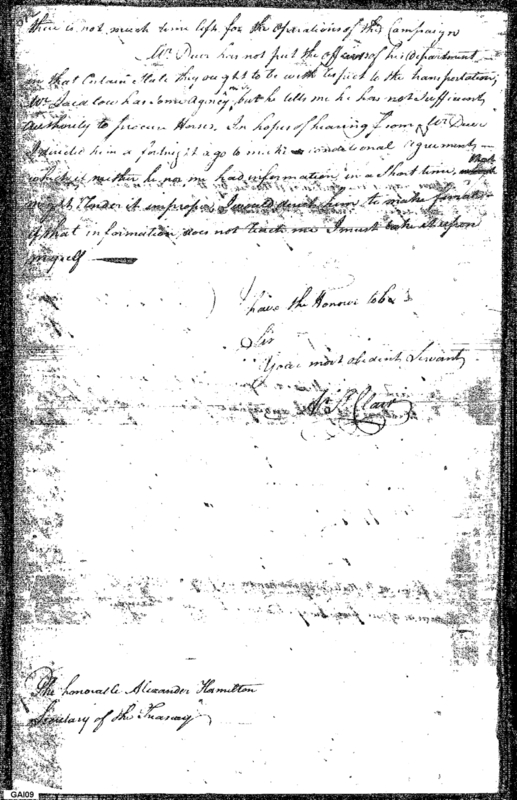 there is not much time left for the Operations of this Campaign
Mr Duer has not put the affairs of his department
in that Certain State they ought to be with respect to the transportation,
Mr has some Agency in it but he tells me he has not sufficient
authority to procure Horses. In hopes of hearing from Mr Duer
I desired him a fortnight ago to make conditional Agreements,
which if neither he nor me had information in a short time, that
might render it improper, I would desire him to make
if that information does not reach me I must take it upon
myself —
have the Honour to be
Sir
Your most obedient Servant
Ar St Clair
The honorable Alexander Hamilton
Secretary of the Treasury
GAI09